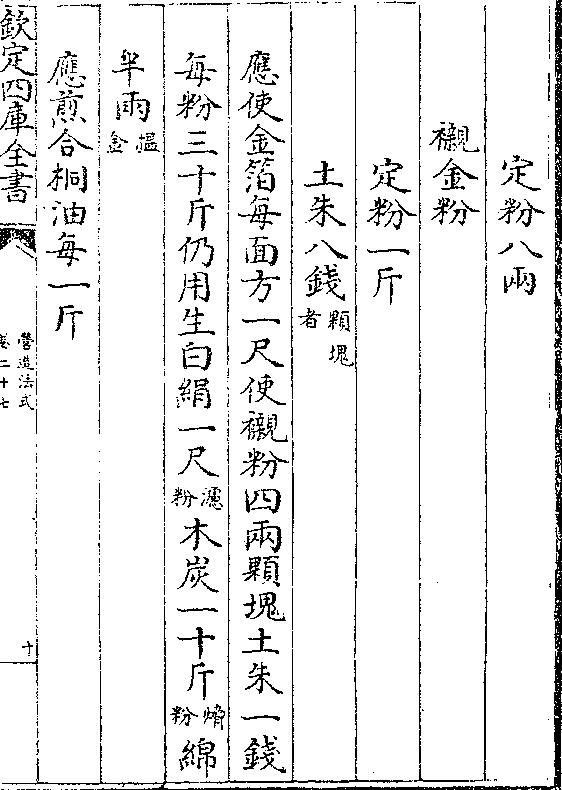 定粉八兩
襯金粉
定粉一斤
土朱八錢顆塊者
應使金箔每面方一尺使襯粉四兩顆塊土朱一錢
每粉三十斤仍用生白絹一尺濾粉木炭一十斤㷶粉綿
半兩揾金
應煎合桐油每一斤
欽定四庫全書
營造法式
卷二十七
十